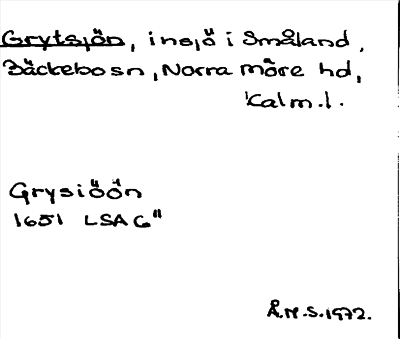 Grytsjön, insjö i Småland,
Bäckebo sn, Norra Möre hd,
Kalm.l.
Grysiöön
1651 LSA G"
Å.M.S.1972.